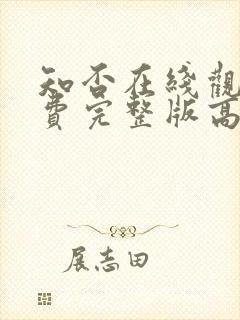 知否在线觀
費完整版高
展志田